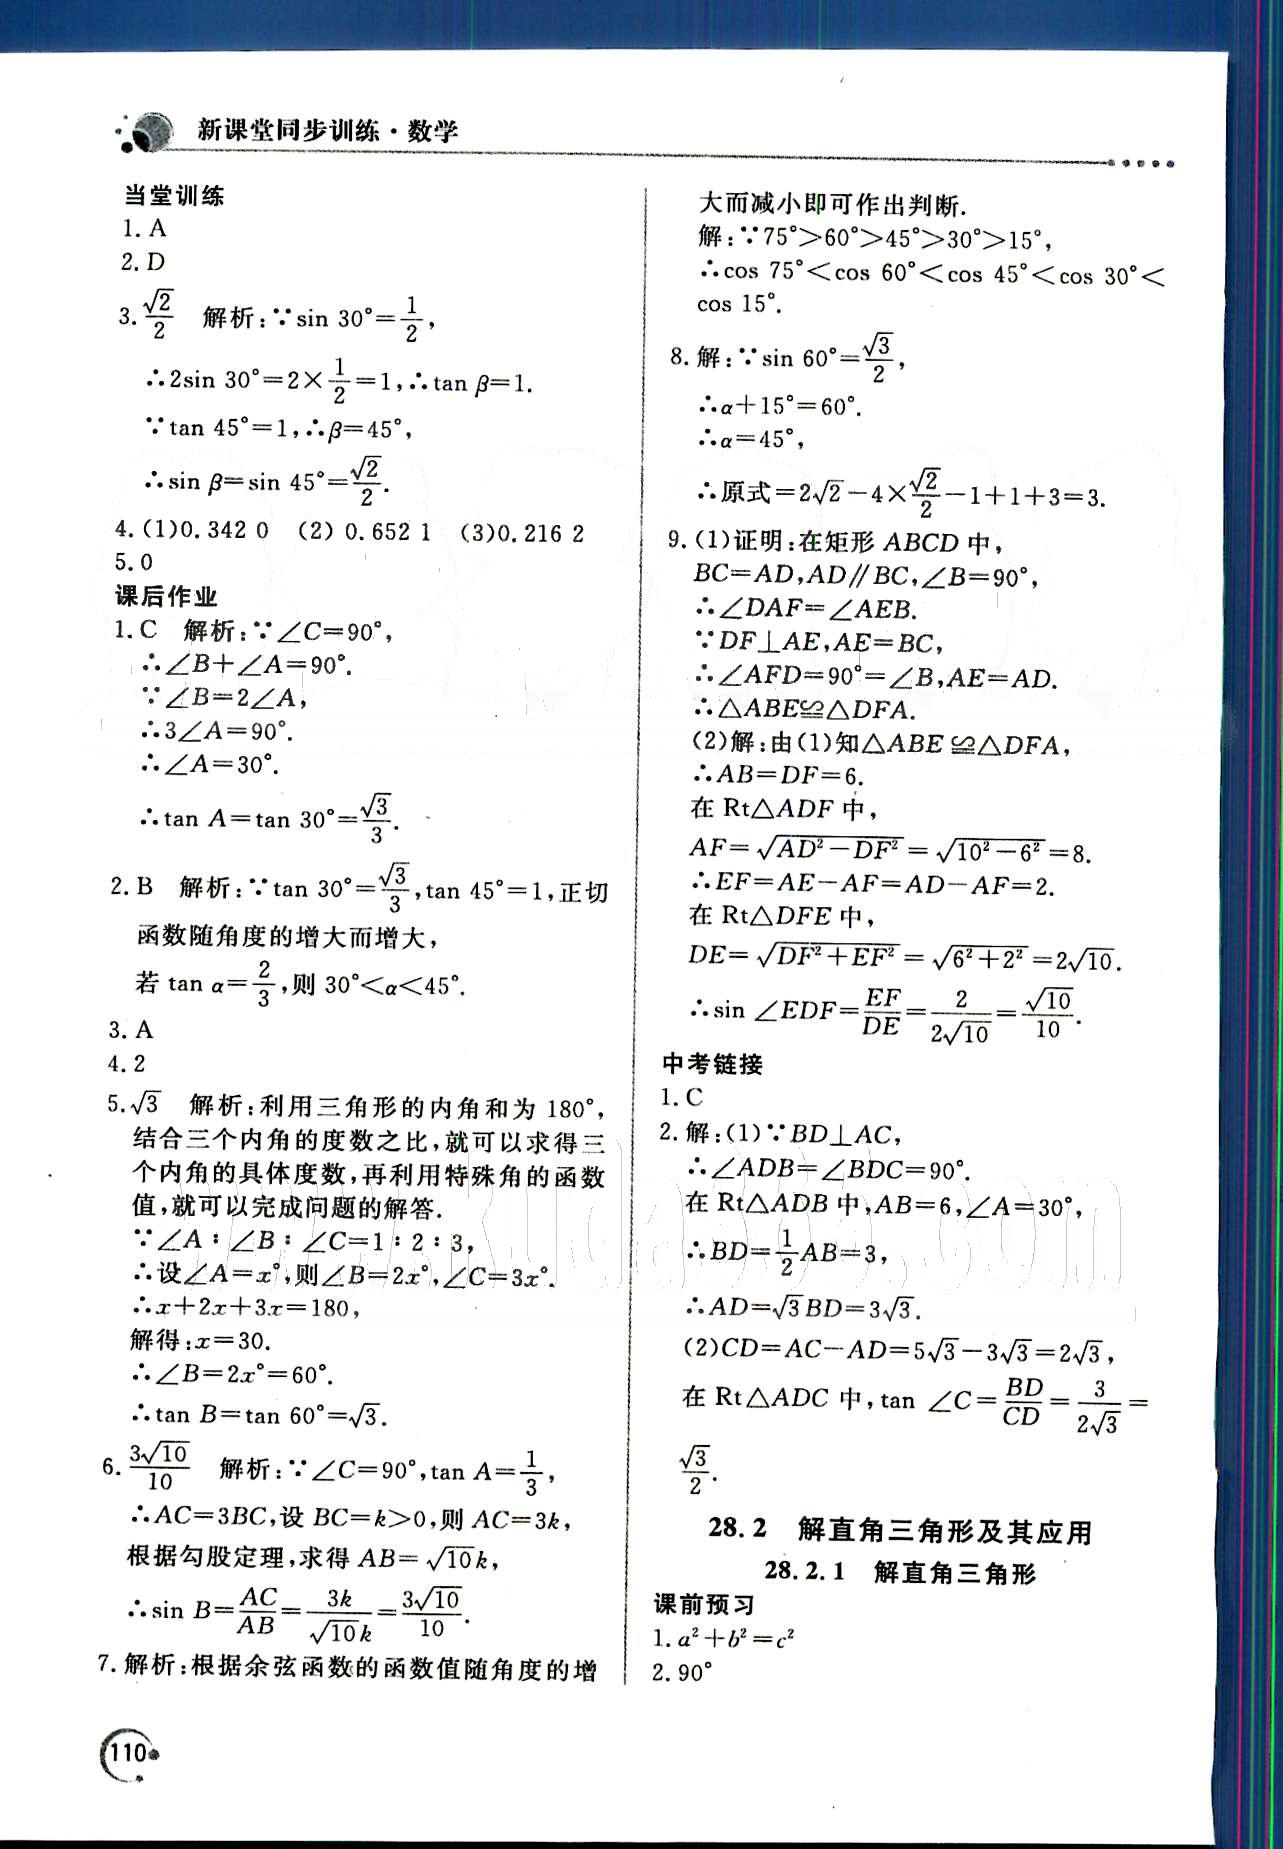 新课堂同步训练·数学
当堂训练
1. A
2. D
3. √2/2 解析:∵sin 30°=1/2,
∴2sin 30°=2×1/2=1,∴tan β=1.
∵tan 45°=1,∴β=45°,
∴sin β=sin 45°=√2/2.
4. (1)0.342 0 (2) 0.652 1 (3)0.216 2
5. 0
课后作业
1. C 解析:∵∠C=90°,
∴∠B+∠A=90°.
∵∠B=2∠A,
∴3∠A=90°.
∴∠A=30°.
∴tan A=tan 30°=√3/3.
2. B 解析:∵tan 30°=√3/3,tan 45°=1,正切
函数随角度的增大而增大,
若 tan α=2/3,则 30°<α<45°.
3. A
4. 2
5. √3 解析:利用三角形的内角和为 180°,
结合三个内角的度数之比,就可以求得三
个内角的具体度数,再利用特殊角的函数
值,就可以完成问题的解答.
∵∠A∶∠B∶∠C=1∶2∶3,
∴设∠A=x°,则∠B=2x°,∠C=3x°.
∴x+2x+3x=180,
解得:x=30.
∴∠B=2x°=60°.
∴tan B=tan 60°=√3.
6. 3√10/10 解析:∵∠C=90°,tan A=1/3,
∴AC=3BC,设 BC=k>0,则 AC=3k,
根据勾股定理,求得 AB=√10k,
∴sin B=AC/AB=3k/√10k=3√10/10.
7. 解析:根据余弦函数的函数值随角度的增
大而减小即可作出判断.
解:∵75°>60°>45°>30°>15°,
∴cos 75°<cos 60°<cos 45°<cos 30°<
cos 15°.
8. 解:∵sin 60°=√3/2,
∴α+15°=60°.
∴α=45°,
∴原式=2√2-4×√2/2-1+1+3=3.
9. (1)证明:在矩形 ABCD 中,
BC=AD,AD∥BC,∠B=90°,
∴∠DAF=∠AEB.
∵DF⊥AE,AE=BC,
∴∠AFD=90°=∠B,AE=AD.
∴△ABE≌△DFA.
(2)解:由(1)知△ABE≌△DFA,
∴AB=DF=6.
在 Rt△ADF 中,
AF=√(AD²-DF²)=√(10²-6²)=8.
∴EF=AE-AF=AD-AF=2.
在 Rt△DFE 中,
DE=√(DF²+EF²)=√(6²+2²)=2√10.
∴sin ∠EDF=EF/DE=2/2√10=√10/10.
中考链接
1. C
2. 解:(1)∵BD⊥AC,
∴∠ADB=∠BDC=90°.
在 Rt△ADB 中,AB=6,∠A=30°,
∴BD=1/2AB=3,
∴AD=√3BD=3√3.
(2)CD=AC-AD=5√3-3√3=2√3,
在 Rt△ADC 中,tan ∠C=BD/CD=3/2√3=
√3/2.
28.2 解直角三角形及其应用
28.2.1 解直角三角形
课前预习
1. a²+b²=c²
2. 90°
110